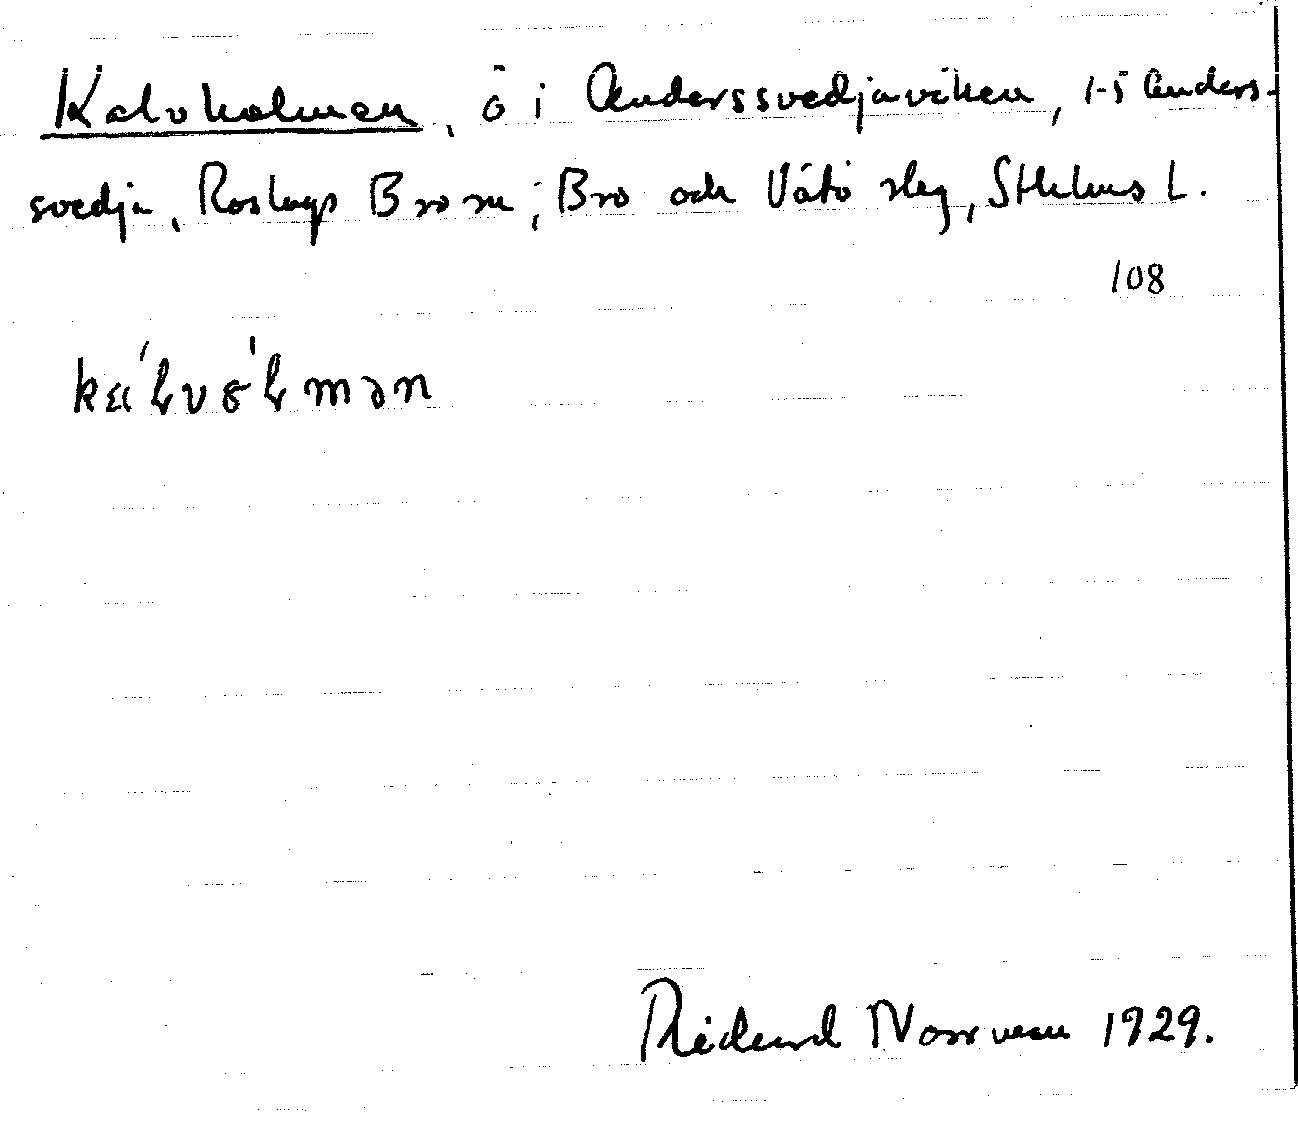 Kalvholmen, ö i Anderssvedjaviken, 1-5 Anders-
svedja, Roslags Bro sn, Bro och Vätö skg, Sthlms L.
108
Rickard Norrman 1929.